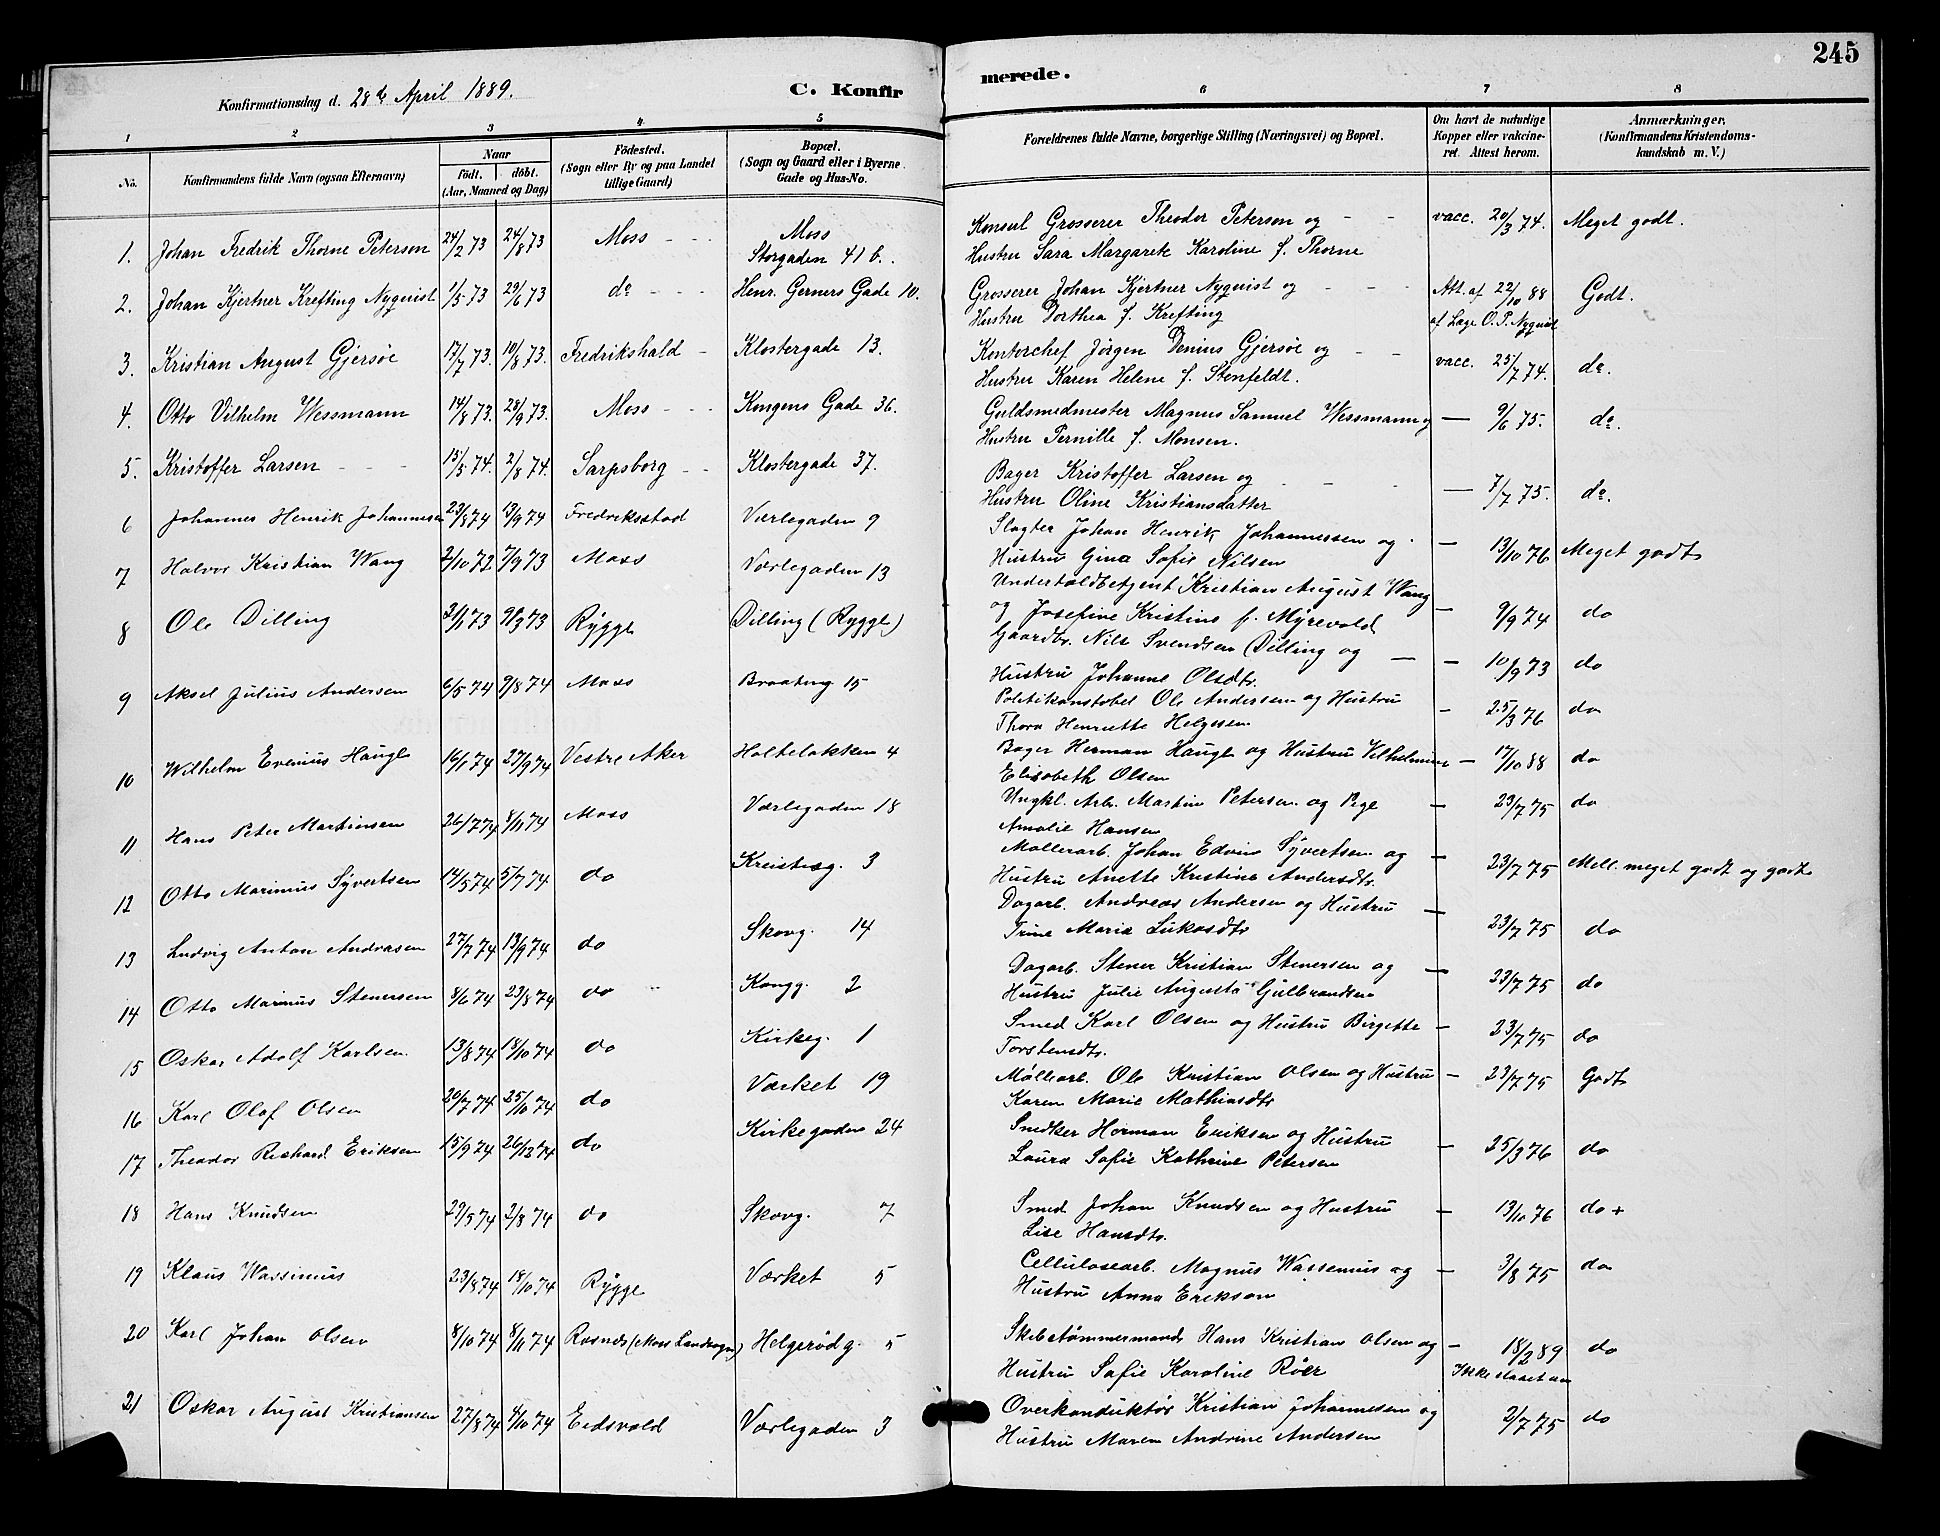 245
Konfirmationsdag d. 28de April 1889. C. Konfirmerede.
1 2 3 4 5 6 7 8
No. Konfirmandens fulde Navn (ogsaa Efternavn) Naar födt. döbt. (Aar, Maaned og Dag) Födested. (Sogn eller By og paa Landet tillige Gaard) Bopæl. (Sogn og Gaard eller i Byerne Gade og Hus-No. Forældrenes fulde Navne, borgerlige Stilling (Næringsvei) og Bopæl. Om havt de naturlige Kopper eller vakcineret. Attest herom. Anmærkninger. (Konfirmandens Kristendomskundskab m. V.)
1. Johan Fredrik Thorne Peterson 24/2 73 24/8 73 Moss Moss Storgaden 41 b. Konsul Grosserer Theodor Peterson og Hustru Sara Margarete Karoline f. Thorne vacc. 20/3 74. Meget godt.
2. Johan Kjertner Krefting Nyquist 1/5 73 29/6 73 do Henr. Gerners Gade 10. Grosserer Johan Kjertner Nyquist og Hustru Dorthea f. Krefting Att. af 22/10 88 af Læge O.P. Nyquist Godt.
3. Kristian August Gjersøe 17/7 73. 10/8 73. Fredrikshald Klostergade 13. Kontorchef Jörgen Denius Gjersøe og Hustru Karen Helene f. Stenfeldt. vacc. 25/7 74. do.
4. Otto Vilhelm Wessmann 14/8 73. 28/9 73. Moss Kongens Gade 36. Guldsmedmester Magnus Samuel Wessmann og Hustru Pernille f. Monsen. — 9/6 75. do.
5. Kristoffer Larsen 15/5 74. 2/8 74. Sarpsborg Klostergade 37. Bager Kristoffer Larsen og Hustru Oline Kristiansdatter — 7/7 75. do.
6 Johannes Henrik Johannesen 23/8 74 13/9 74 Fredriksstad Værlegaden 9 Slagter Johan Henrik Johannessen og Hustru Gina Sofie Nilsen — 13/10 76 Meget godt
7 Halvor Kristian Wang 2/10 72 7/9 73 Moss Værlegaden 13 Undertoldbetjent Kristian August Wang og Josefine Kristine f. Myrevold — 9/9 74 do
8 Ole Dilling 2/1 73 9/3 73 Rygge Dilling (Rygge) Gaardbr. Nils Svendsen Dilling og Hustru Johanne Olsdtr. — 10/9 73 do
9 Aksel Julius Andersen 6/5 74 9/8 74 Moss Braateng 15 Politikonstabel Ole Andersen og Hustru Thora Henriette Helgesen — 25/3 76 do
10 Wilhelm Evenius Haugle 16/1 74 27/9 74 Vestre Aker Holteløkken 4 Bager Herman Haugle og Hustru Vilhelmine Elisabeth Olsen — 17/10 88 do
11 Hans Peter Martinsen 26/7 74 8/11 74 Moss Værlegaden 18 Ungkl. Arb. Martin Petersen og Pige Amalie Hansen — 23/7 75 do
12 Otto Marinius Syvertsen 14/5 74 5/7 74 do 3 Møllerarb. Johan Edvin Syvertsen og Hustru Anette Kristine Andersdtr. — 23/7 75 Mell. meget godt og godt
13 Ludvig Anton Andreasen 27/7 74 13/9 74 do Skovg. 14 Dagarb. Andreas Andersen og Hustru Trine Marie Lukasdtr — 23/7 75 do
14 Otto Marinus Stenersen 8/6 74 23/8 74 do Kongg. 2 Dagarb. Stener Kristian Stenersen og Hustru Julie Augusta Gulbrandsen — 23/7 75 do
15 Oskar Adolf Karlsen 13/8 74 18/10 74 do Kirkeg. 1 Smed Karl Olsen og Hustru Birgette Torstensdtr. — 23/7 75 do
16 Karl Olaf Olsen 20/7 74 25/10 74 do Værket 19 Møllearb. Ole Kristian Olsen og Hustru Karen Marie Mathiasdtr — 23/7 75 Godt
17 Theodor Richard Eriksen 15/9 74 26/12 74 do Kirkegaden 24 Snedker Herman Eriksen og Hustru Laura Sofie Kathrine Petersen — 25/3 76 do
18 Hans Knudsen 29/5 74 2/8 74 do Skovg. 7 Smed Johan Knudsen og Hustru Lise Hansdtr. — 13/10 76 do +
19 Klaus Wassimus 23/8 74 18/10 74 Rygge Værket 5 Cellulosearb. Magnus Wassemus og Hustru Anna Eriksen — 3/8 75 do
20 Karl Johan Olsen 8/10 74 8/11 74 Rosnes (Moss Landsogn) Helgerødg. 5 Skibstømmermand Hans Kristian Olsen og Hustru Sofie Karoline Röer — 18/2 89 Ikke slaaet an do
21 Oskar August Kristiansen 27/8 74 4/10 74 Eidsvold Værlegaden 3 Overkonduktör Kristian Johannesen og Hustru Maren Andrine Andersen 2/7 75 do